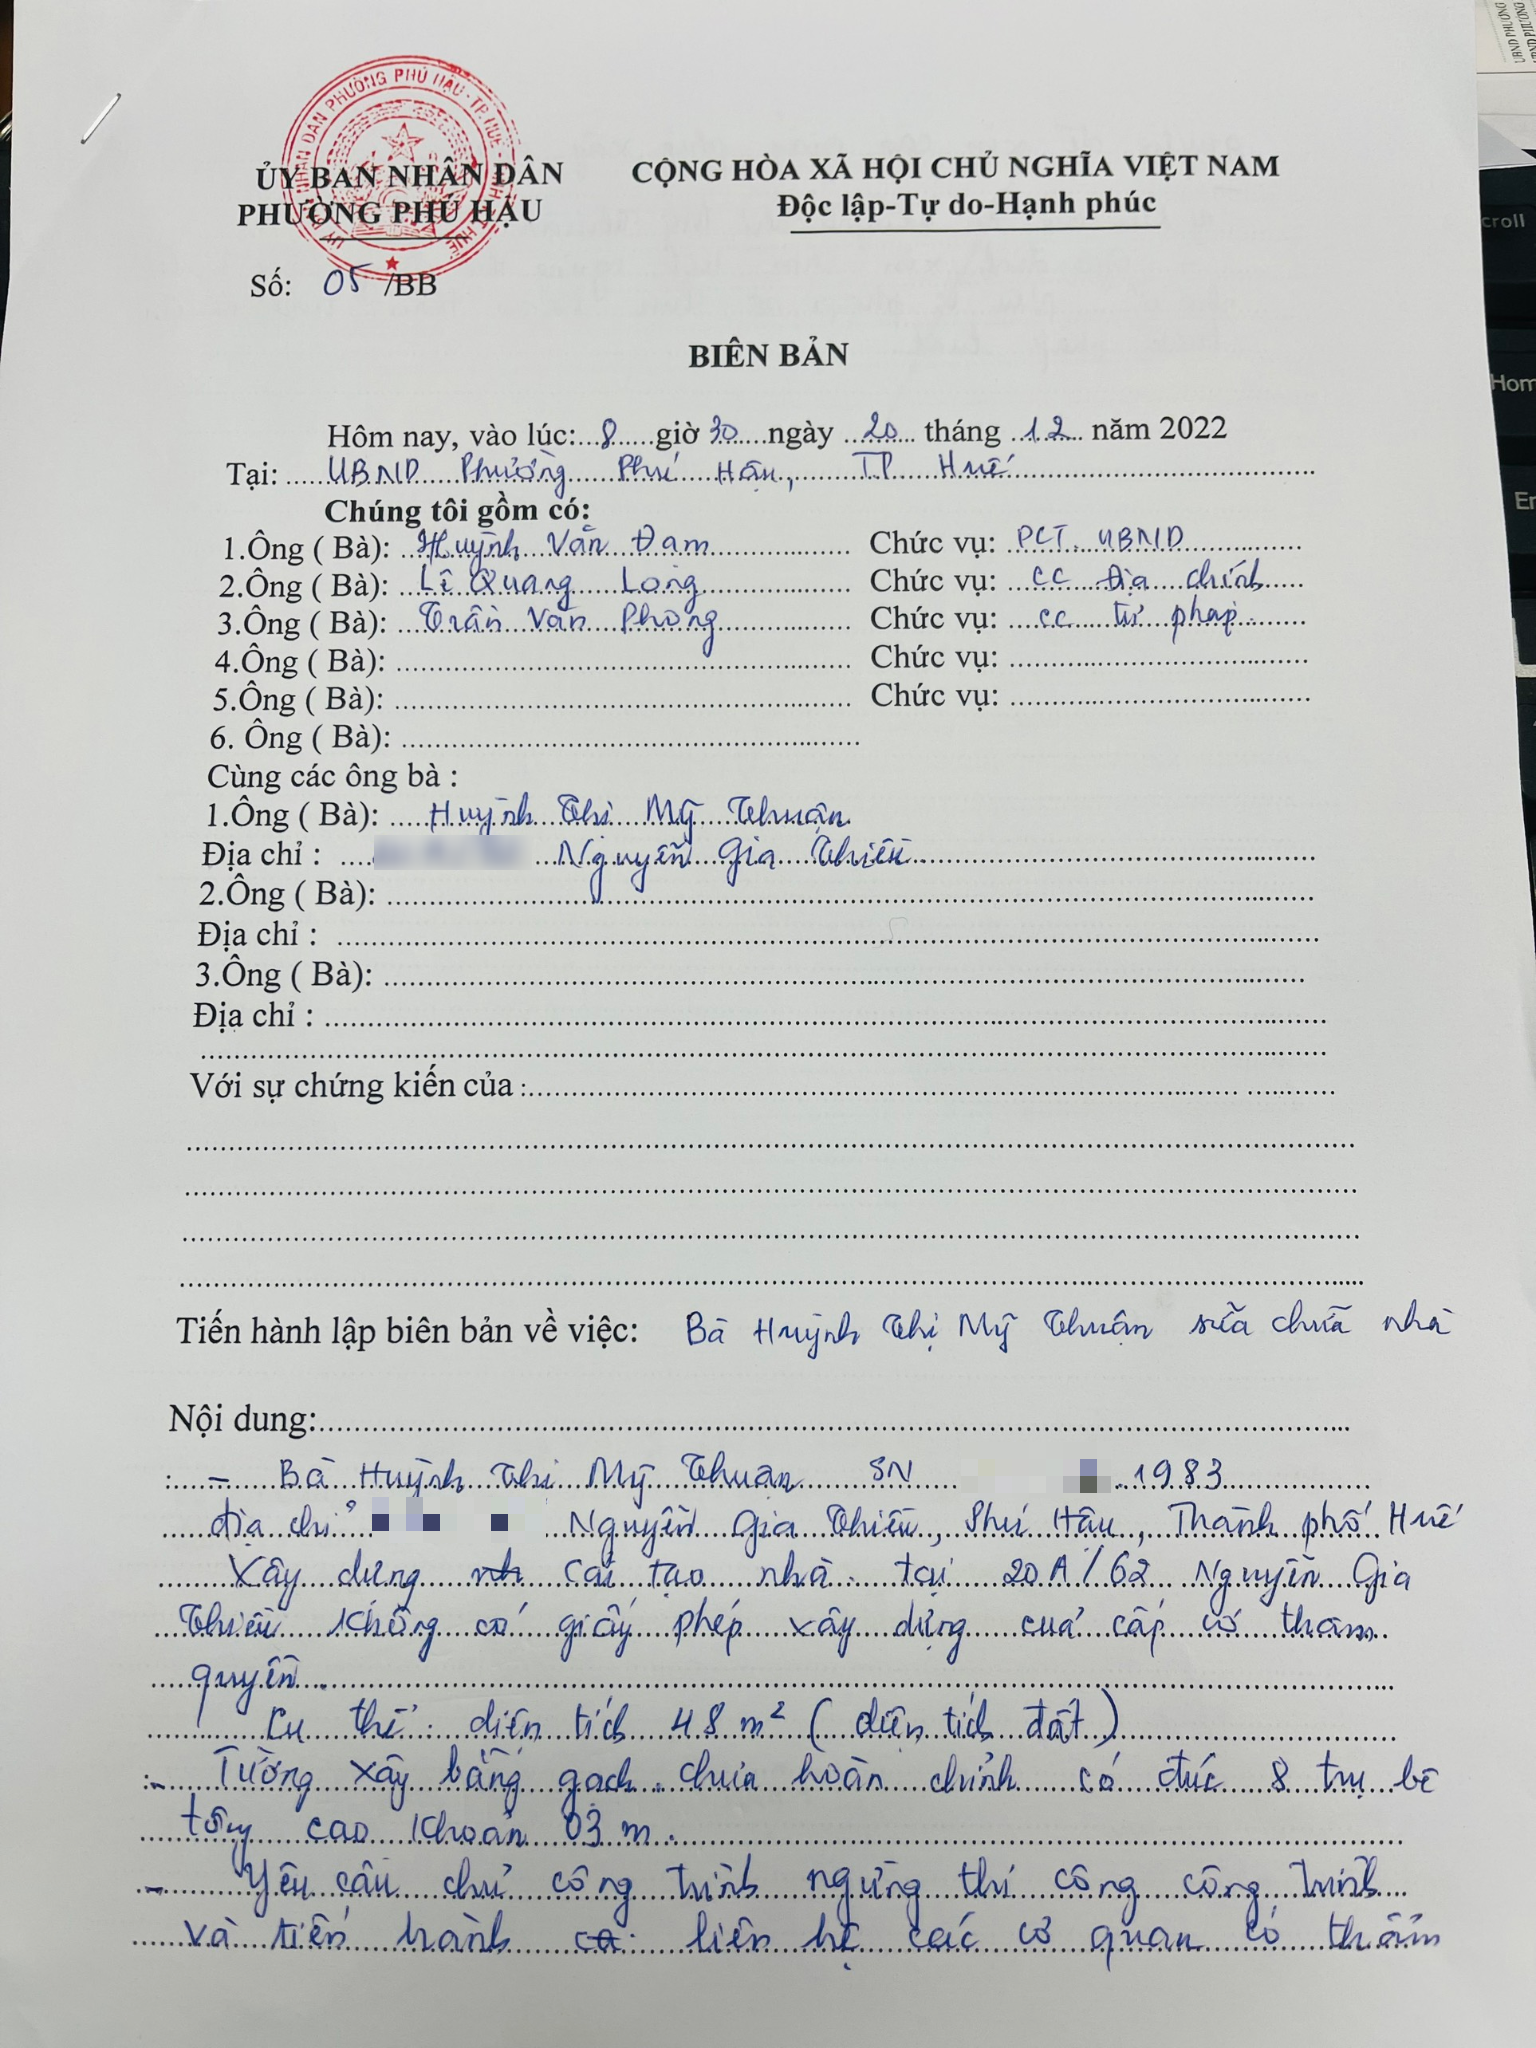 ỦY BAN NHÂN DÂN
PHƯỜNG PHÚ HẬU
CỘNG HÒA XÃ HỘI CHỦ NGHĨA VIỆT NAM
Độc lập-Tự do-Hạnh phúc
Số: 05 /BB
BIÊN BẢN
Hôm nay, vào lúc: 8 giờ 30 ngày 20 tháng 12 năm 2022
Tại: UBND Phường Phú Hậu, TP Huế
Chúng tôi gồm có:
1.Ông ( Bà): Huỳnh Văn Đam Chức vụ: PCT UBND
2.Ông ( Bà): Lê Quang Long Chức vụ: CC Địa chính
3.Ông ( Bà): Trần Văn Phong Chức vụ: CC tư pháp
4.Ông ( Bà): Chức vụ:
5.Ông ( Bà): Chức vụ:
6. Ông ( Bà):
Cùng các ông bà :
1.Ông ( Bà): Huỳnh Thị Mỹ Thuận
Địa chỉ : Nguyễn Gia Thiều
2.Ông ( Bà):
Địa chỉ :
3.Ông ( Bà):
Địa chỉ :
Với sự chứng kiến của :
Tiến hành lập biên bản về việc: Bà Huỳnh Thị Mỹ Thuận sữa chữa nhà
Nội dung:
- Bà Huỳnh Thị Mỹ Thuận SN 1983
địa chỉ Nguyễn Gia Thiều, Phú Hậu, Thành phố Huế
Xây dựng cải tạo nhà tại 20A/62 Nguyễn Gia
Thiều không có giấy phép xây dựng của cấp có thẩm
quyền.
Cụ thể: diện tích 48 m² (diện tích đất)
- Tường xây bằng gạch chưa hoàn chỉnh có đúc 8 trụ bê
tông cao khoản 03 m.
- Yêu cầu chủ công trình ngừng thi công công trình
và tiến hành liên hệ các cơ quan có thẩm
scroll
Hom
UBND PHƯỜNG